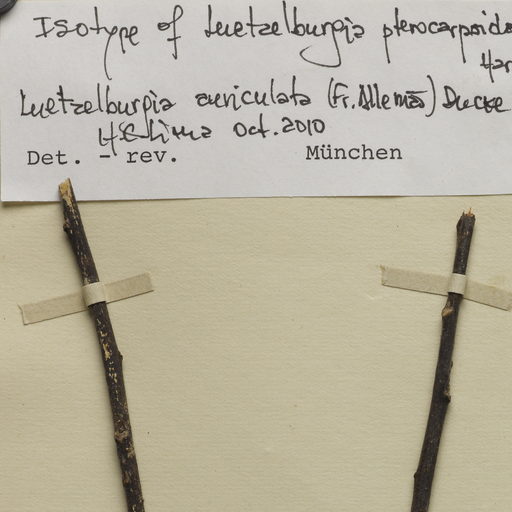 Isotype of Luetzelburgia pterocarpoide
Har
Luetzelburgia auriculata (Fr. Allemã) Ducke
HC Lima Oct. 2010
Det. - rev. München